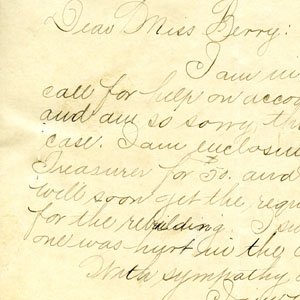 Dear Miss Berry:
I am in
call for help on accou
and am so sorry th
case. I am enclosin
Treasurer for $5. and
will soon get the requi
for the rebuilding. I
one was hurt in the
With sympathy